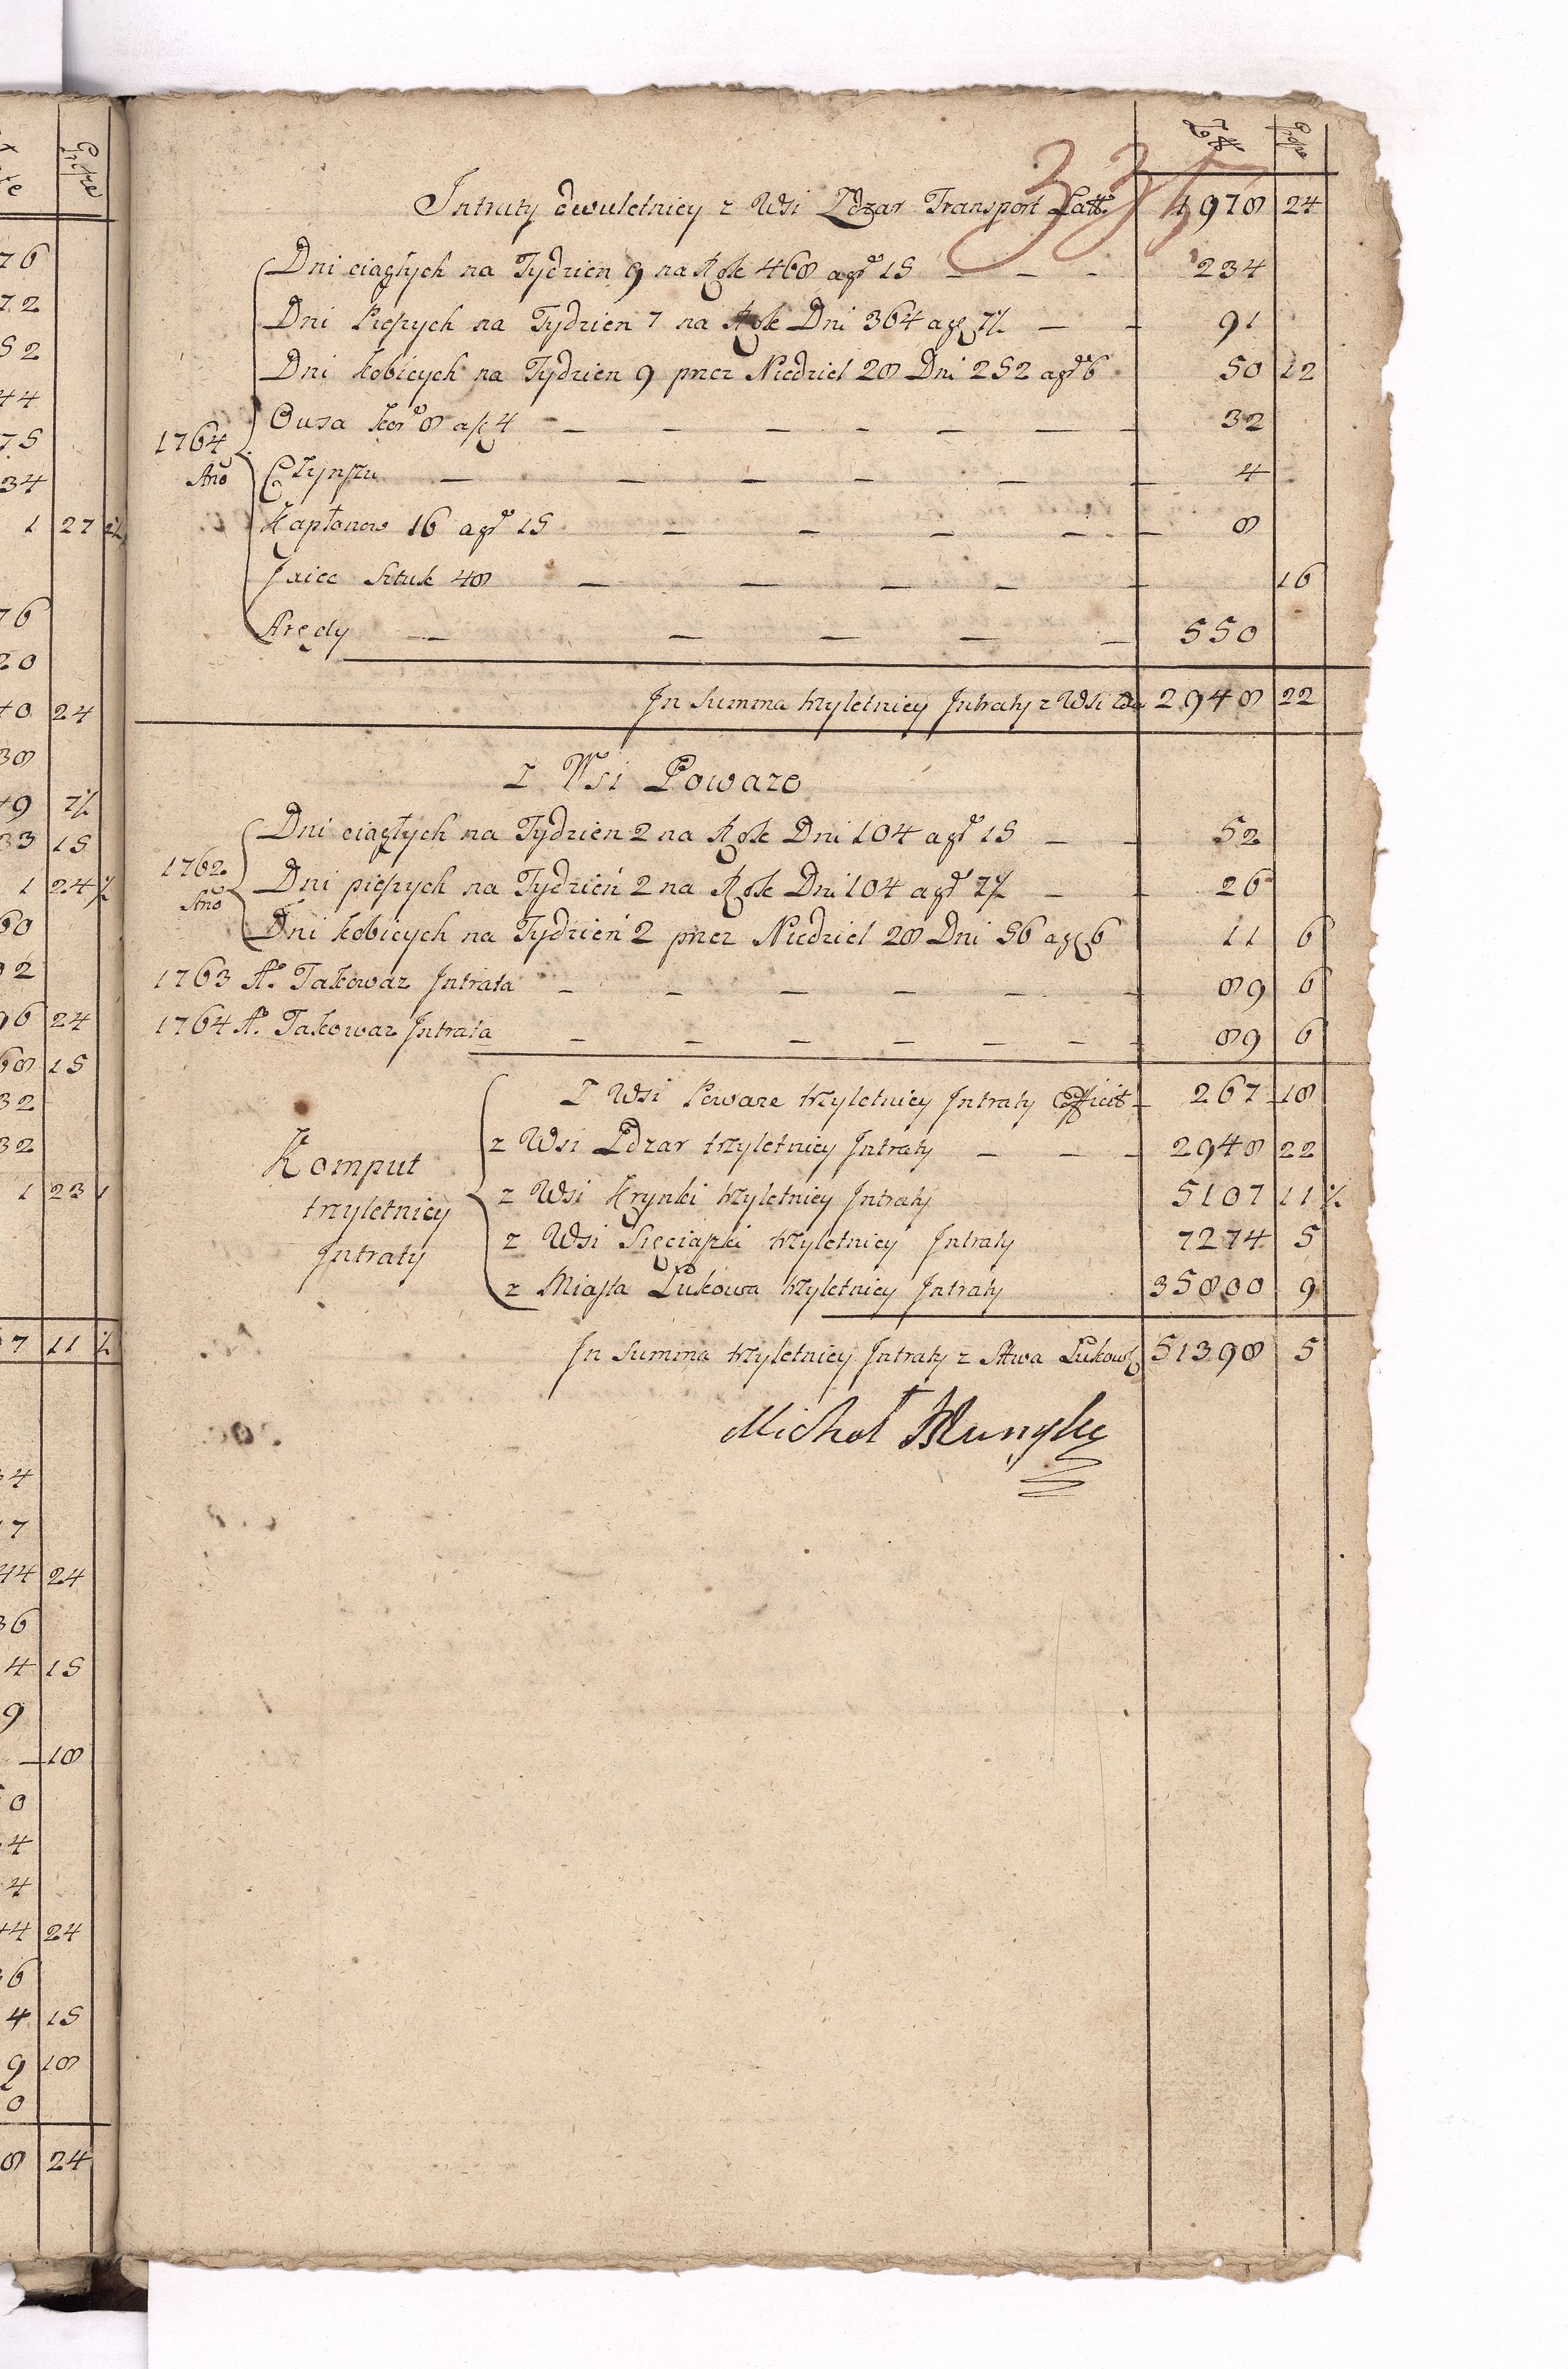 335
Złł Grosze
Intraty dwuletniey z Wsi Zdzar Transport Latt: 1978 24
1764 Ano
Dni ciągłych na Tydzien 9 na Rok 468 a gr 15 — — — 234
Dni Pieszych na Tydzien 7 na Rok Dni 364 a gr 7½ — — 91
Dni kobiecych na Tydzien 9 przez Niedziel 28 Dni 252 a gr 6 50 12
Owsa kor 8 a zł 4 — — — — — — — 32
Czynszu — — — — — — 4
Kapłonow 16 a gr 15 — — — — — 8
Jaiec Sztuk 48 — — — — — 16
Arędy — — — — — 550
In Summa trzyletniey Intraty z Wsi Zdz 2948 22
Z Wsi Poważe
1762 Ano
Dni ciągłych na Tydzien 2 na Rok Dni 104 a gr 15 — — 52
Dni pieszych na Tydzień 2 na Rok Dni 104 a gr 7½ — — 26
Dni kobiecych na Tydzień 2 przez Niedziel 28 Dni 56 a gr 6 11 6
1763 Ao Takowaz Intrata — — — — — — 89 6
1764 Ao Takowaz Intrata — — — — — — — 89 6
Komput trzyletniey Intraty
Z Wsi Poważe trzyletniey Intraty Efficit — 267 18
z Wsi Zdzar trzyletniey Intraty — — — 2948 22
z Wsi Krynki trzyletniey Intraty 5107 11½
z Wsi Sięciaszki trzyletniey Intraty 7274 5
z Miasta Łukowa trzyletniey Intraty 35800 9
In Summa trzyletniey Intraty z Sttwa Łukow 51398 5
Michał